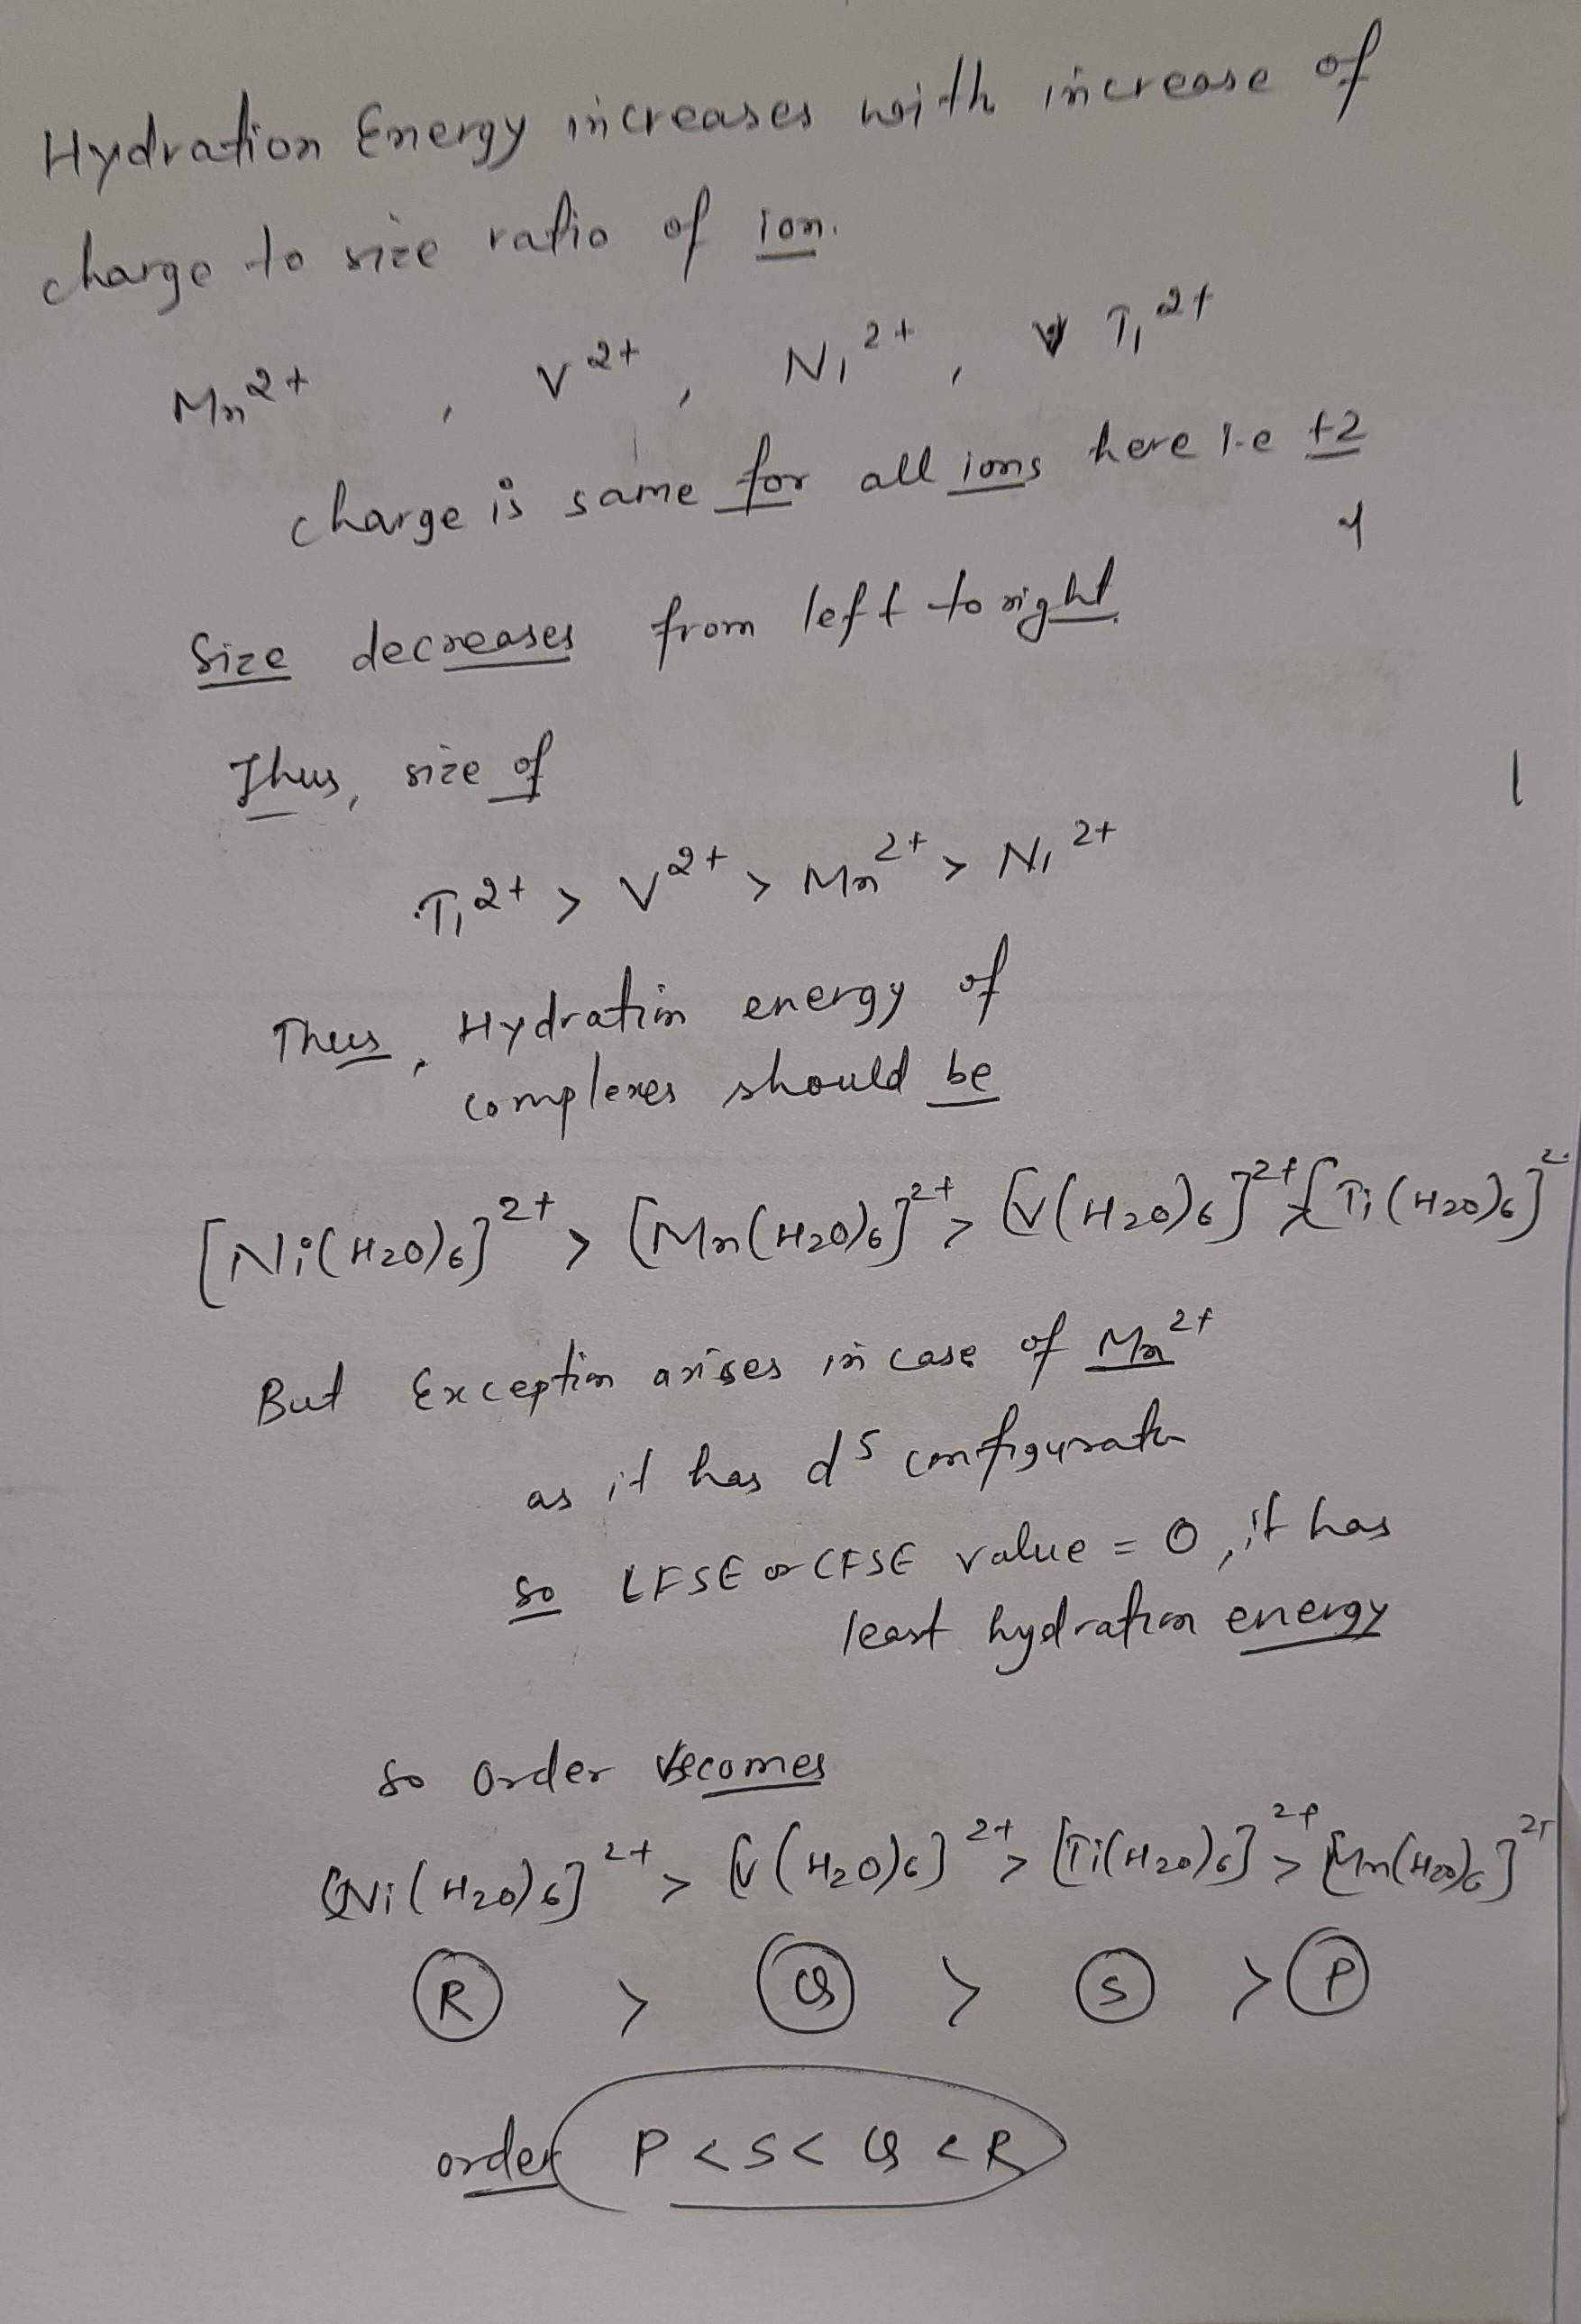 Hydration Energy increases with increase of
charge to size ratio of ion.
Mn2+ , V2+ , Ni2+ , Ti2+
charge is same for all ions here i.e +2
Size decreases from left to right
Thus, size of
Ti2+ > V2+ > Mn2+ > Ni2+
Thus, Hydration energy of
complexes should be
[Ni(H2O)6]2+ > [Mn(H2O)6]2+ > [V(H2O)6]2+ > [Ti(H2O)6]2+
But Exception arises in case of Mn2+
as it has d5 configuratn
so LFSE or CFSE value = 0, it has
least hydration energy
so order becomes
[Ni(H2O)6]2+ > [V(H2O)6]2+ > [Ti(H2O)6]2+ > [Mn(H2O)6]2+
R > Q > S > P
order P < S < Q < R